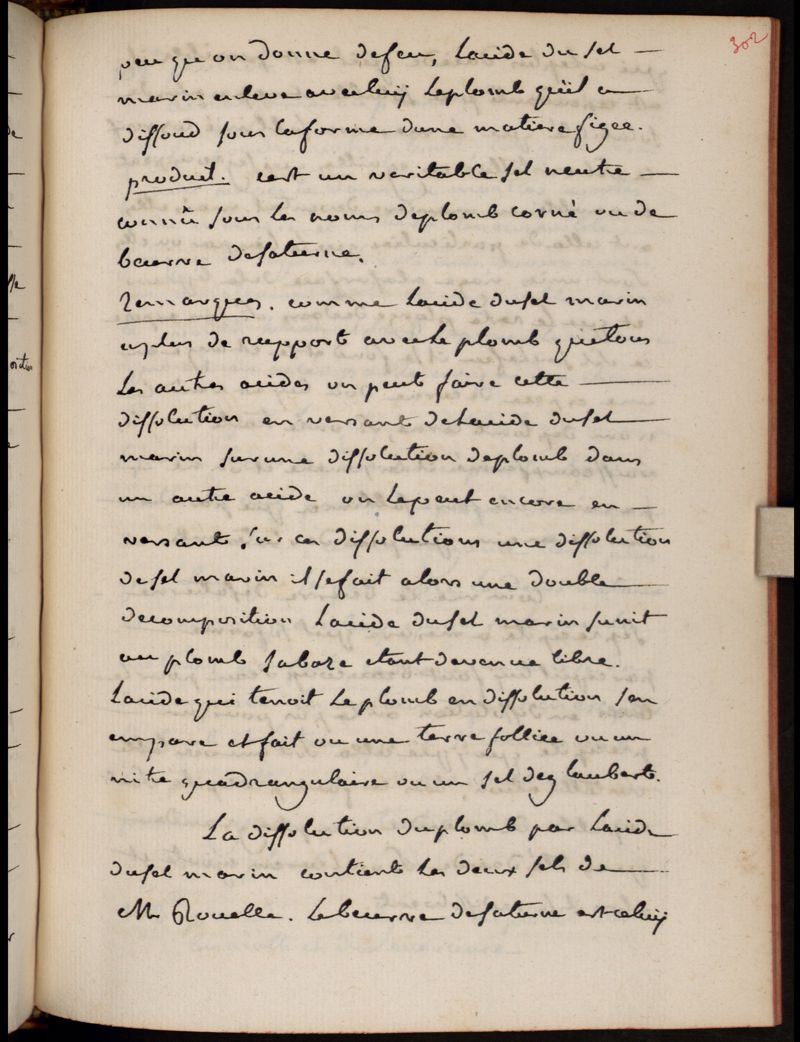 302
peu qu'on donne defeu, Lacide du sel —
marin enleve avecluy Leplomb qu'il a —
dissoud sous laforme dune matiere figée.
produit. cest un veritable sel neutre —
connû sous les noms deplomb corné ou de
beurre desaturne.
Remarques. comme Lacide dusel marin
aplus de rapport avecle plomb quetous
les autres acides on peut faire cette —
dissolution en versant deLacide dusel —
marin surune dissolution deplomb dans
un autre acide on lepeut encore en —
versant sur ces dissolutions une dissolution
desel marin il sefait alors une double —
decomposition Lacide dusel marin sunit
au plomb sabaze etant devenue libre.
Lacide qui tenoit le plomb en dissolution sen
empare etfait ou une terre folliée ou un
nitre quadrangulaire ou un sel deglauberts.
La dissolution duplomb par Lacide
dusel marin contient les deux sels de —
Mr Rouelle. Lebeurre desaturne estceluy